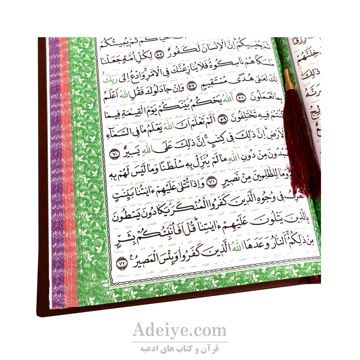 يُحْيِيكُمْ إِنَّ الْإِنْسَانَ لَكَفُورٌ ﴿٦٦﴾ لِكُلِّ أُمَّةٍ جَعَلْنَا
مَنْسَكًا هُمْ نَاسِكُوهُ فَلَا يُنَازِعُنَّكَ فِي الْأَمْرِ وَادْعُ إِلَىٰ رَبِّكَ
إِنَّكَ لَعَلَىٰ هُدًى مُسْتَقِيمٍ ﴿٦٧﴾ وَإِنْ جَادَلُوكَ فَقُلِ اللَّهُ أَعْلَمُ
بِمَا تَعْمَلُونَ ﴿٦٨﴾ اللَّهُ يَحْكُمُ بَيْنَكُمْ يَوْمَ الْقِيَامَةِ فِيمَا
كُنْتُمْ فِيهِ تَخْتَلِفُونَ ﴿٦٩﴾ أَلَمْ تَعْلَمْ أَنَّ اللَّهَ يَعْلَمُ مَا فِي السَّمَاءِ
وَالْأَرْضِ إِنَّ ذَٰلِكَ فِي كِتَابٍ إِنَّ ذَٰلِكَ عَلَى اللَّهِ يَسِيرٌ ﴿٧٠﴾
مِنْ دُونِ اللَّهِ مَا لَمْ يُنَزِّلْ بِهِ سُلْطَانًا وَمَا لَيْسَ لَهُمْ بِهِ
وَمَا لِلظَّالِمِينَ مِنْ نَصِيرٍ ﴿٧١﴾ وَإِذَا تُتْلَىٰ عَلَيْهِمْ آيَاتُنَا بَيِّنَاتٍ
فِي وُجُوهِ الَّذِينَ كَفَرُوا الْمُنْكَرَ يَكَادُونَ يَسْطُونَ
بِالَّذِينَ يَتْلُونَ عَلَيْهِمْ آيَاتِنَا قُلْ أَفَأُنَبِّئُكُمْ بِشَرٍّ
مِنْ ذَٰلِكُمُ النَّارُ وَعَدَهَا اللَّهُ الَّذِينَ كَفَرُوا وَبِئْسَ الْمَصِيرُ ﴿٧٢﴾
Adeiye.com
قرآن و کتاب های ادعیه